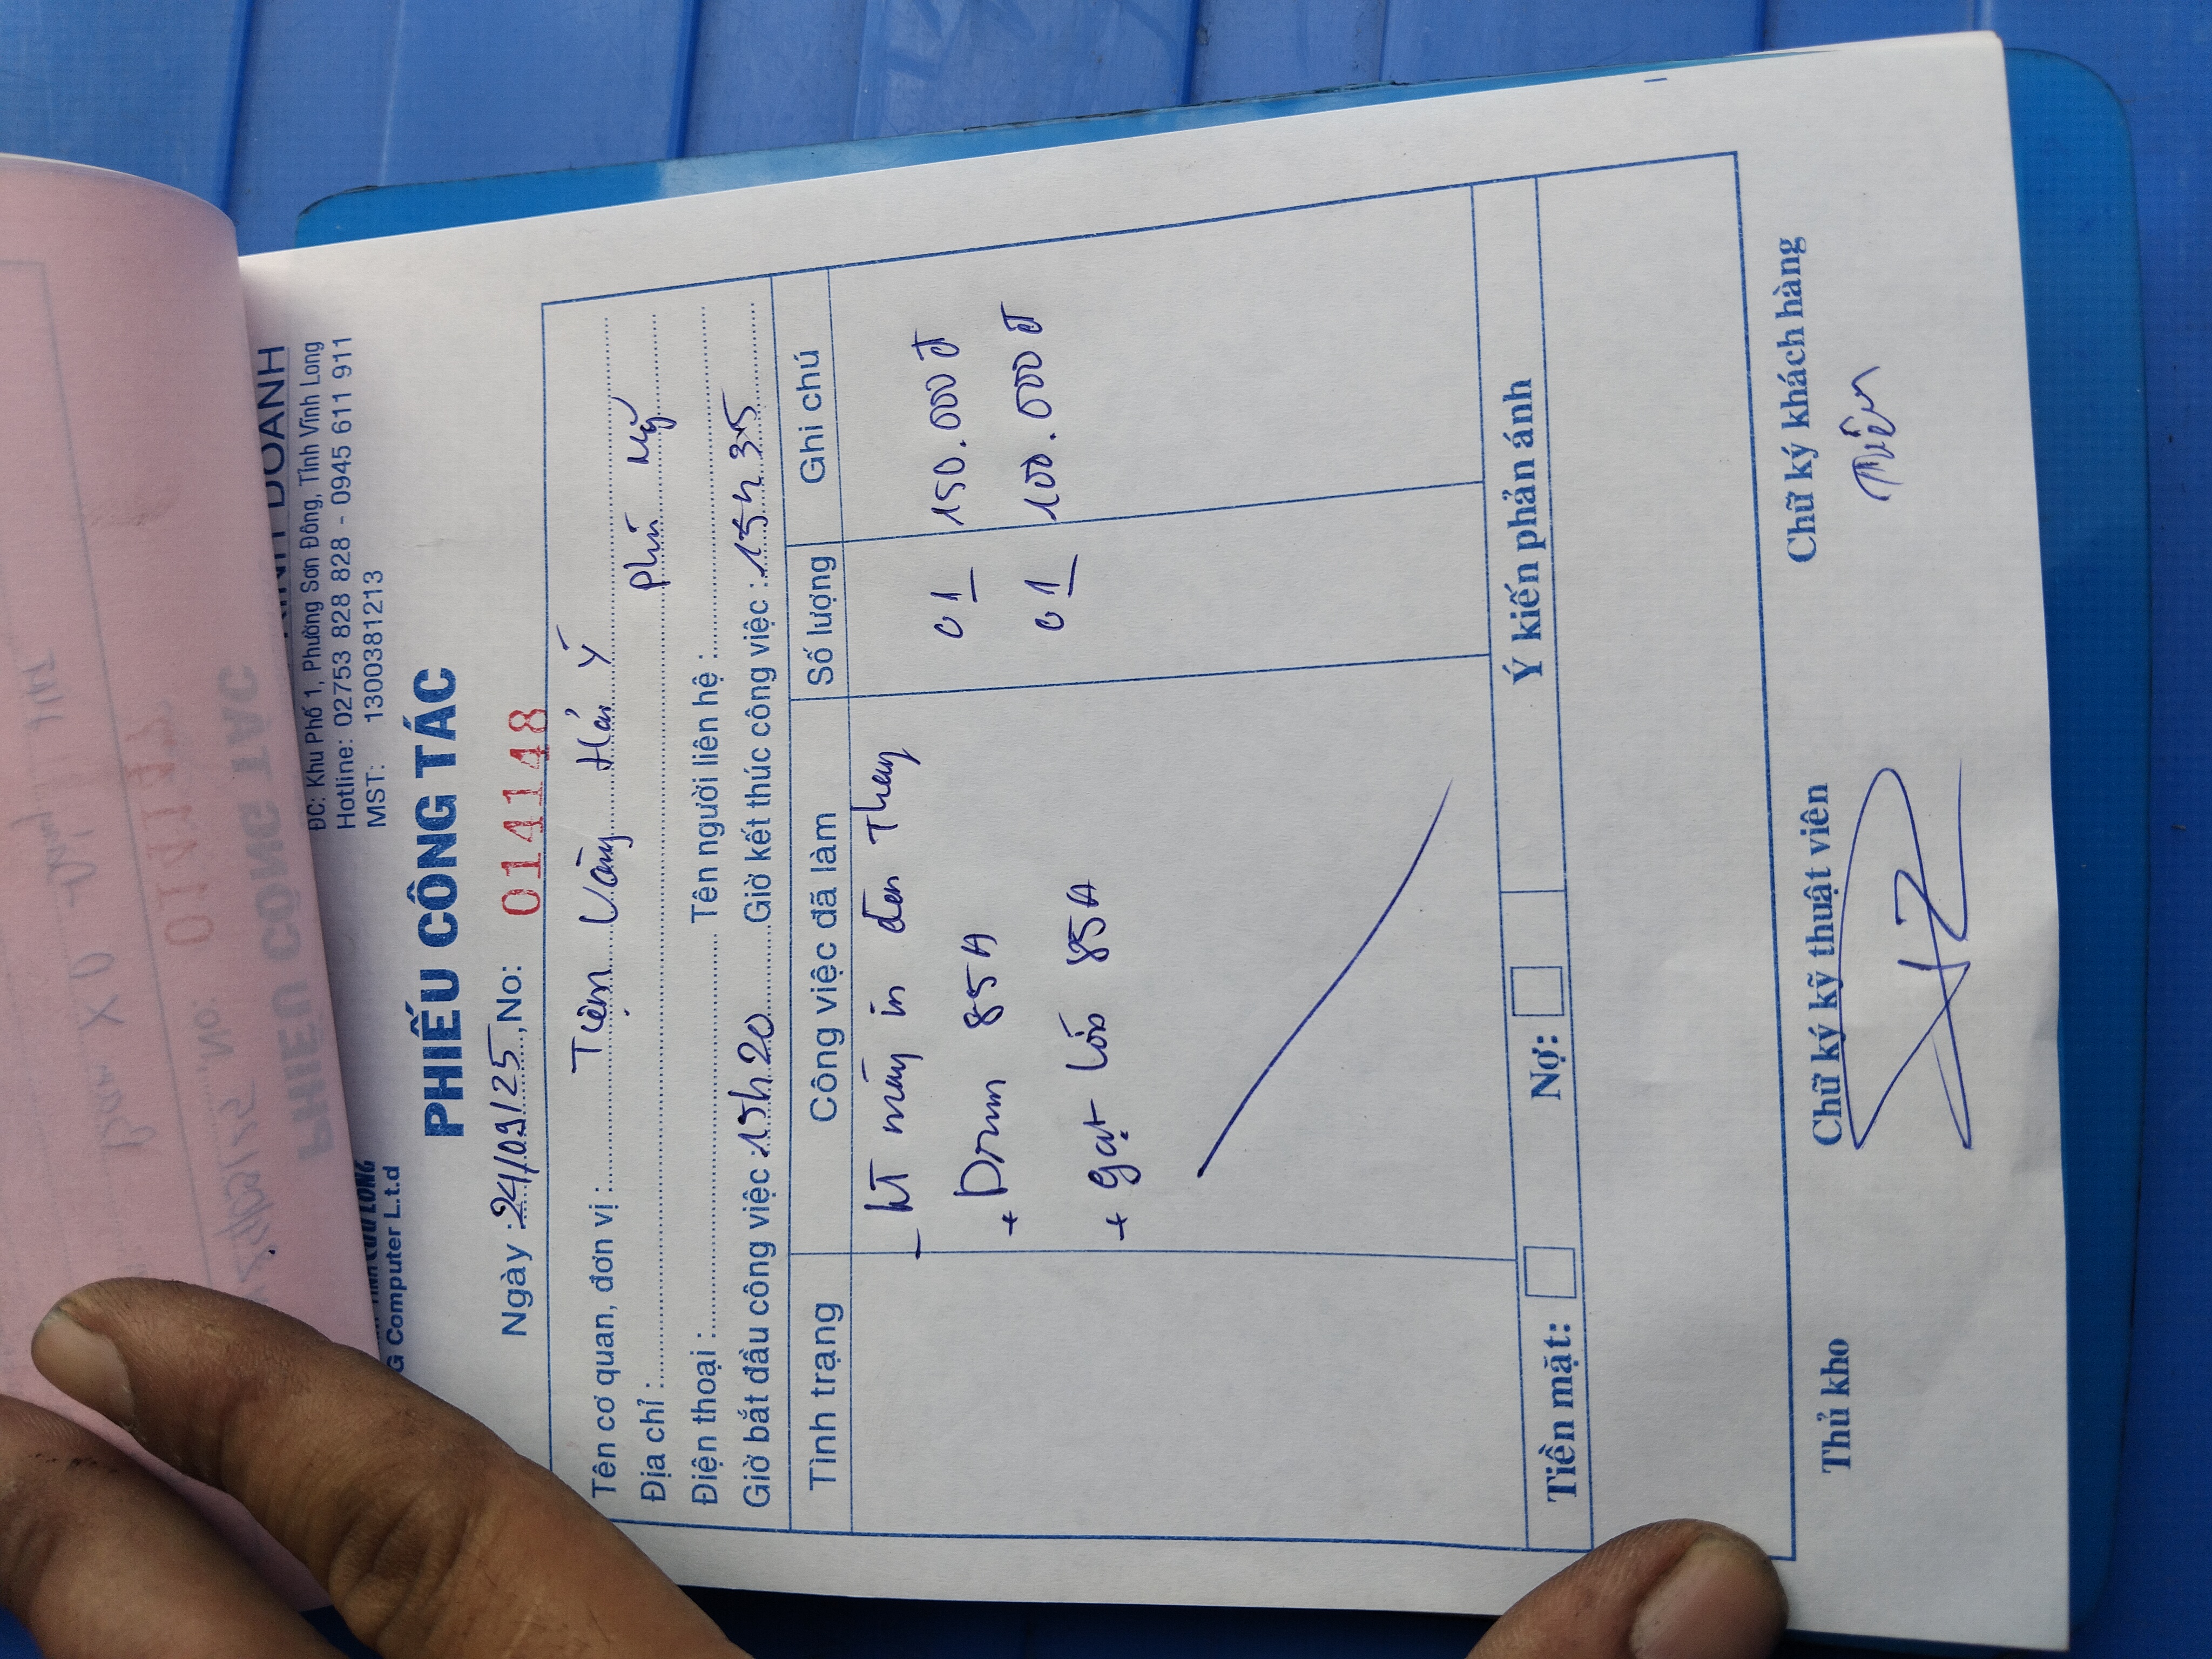 DOANH
ĐC: Khu Phố 1, Phường Sơn Đông, Tỉnh Vĩnh Long
Hotline: 02753 828 828 - 0945 611 911
MST: 1300381213
G Computer L.t.d
PHIẾU CÔNG TÁC
Ngày : 24/09/25, No: 014148
Tên cơ quan, đơn vị : Tiệm Vàng Hán Ý
Địa chỉ : Phú Mỹ
Điện thoại : Tên người liên hệ :
Giờ bắt đầu công việc : 15h20 Giờ kết thúc công việc : 15h35
Tình trạng Công việc đã làm Số lượng Ghi chú
- KT máy in đen Thay
+ Drum 85A 01 150.000đ
+ gạt lớn 85A 01 100.000đ
Tiền mặt: Nợ: Ý kiến phản ánh
Thủ kho Chữ ký kỹ thuật viên Chữ ký khách hàng